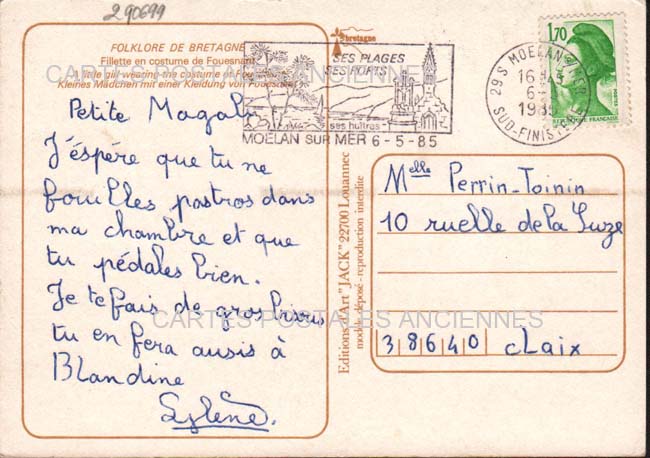 290699
FOLKLORE DE BRETAGNE
Fillette en costume de Fouesnant
A little girl wearing the costume of
Kleines Mädchen mit einer Kleidung von Fouesnant
CARTES POSTALES ANCIENNES
bretagne
SES PLAGES
SES PORTS
ses huîtres
MOELAN SUR MER 6-5-85
1,70
29S MOELAN S/MER
16H
6-5
1985
SUD-FINISTERE
REPUBLIQUE FRANÇAISE
Petite Magali
J'éspére que tu ne
fouilles pastros dans
ma chambre et que
tu pédales bien.
Je te fais de gros bisous
tu en fera aussi à
Blandine
Sylène.
Editions d'Art "JACK" 22700 Louannec
modèle déposé - reproduction interdite
Melle Perrin-Toinin
10 ruelle de la Suze
38640 Claix
CARTES POSTALES ANCIENNES